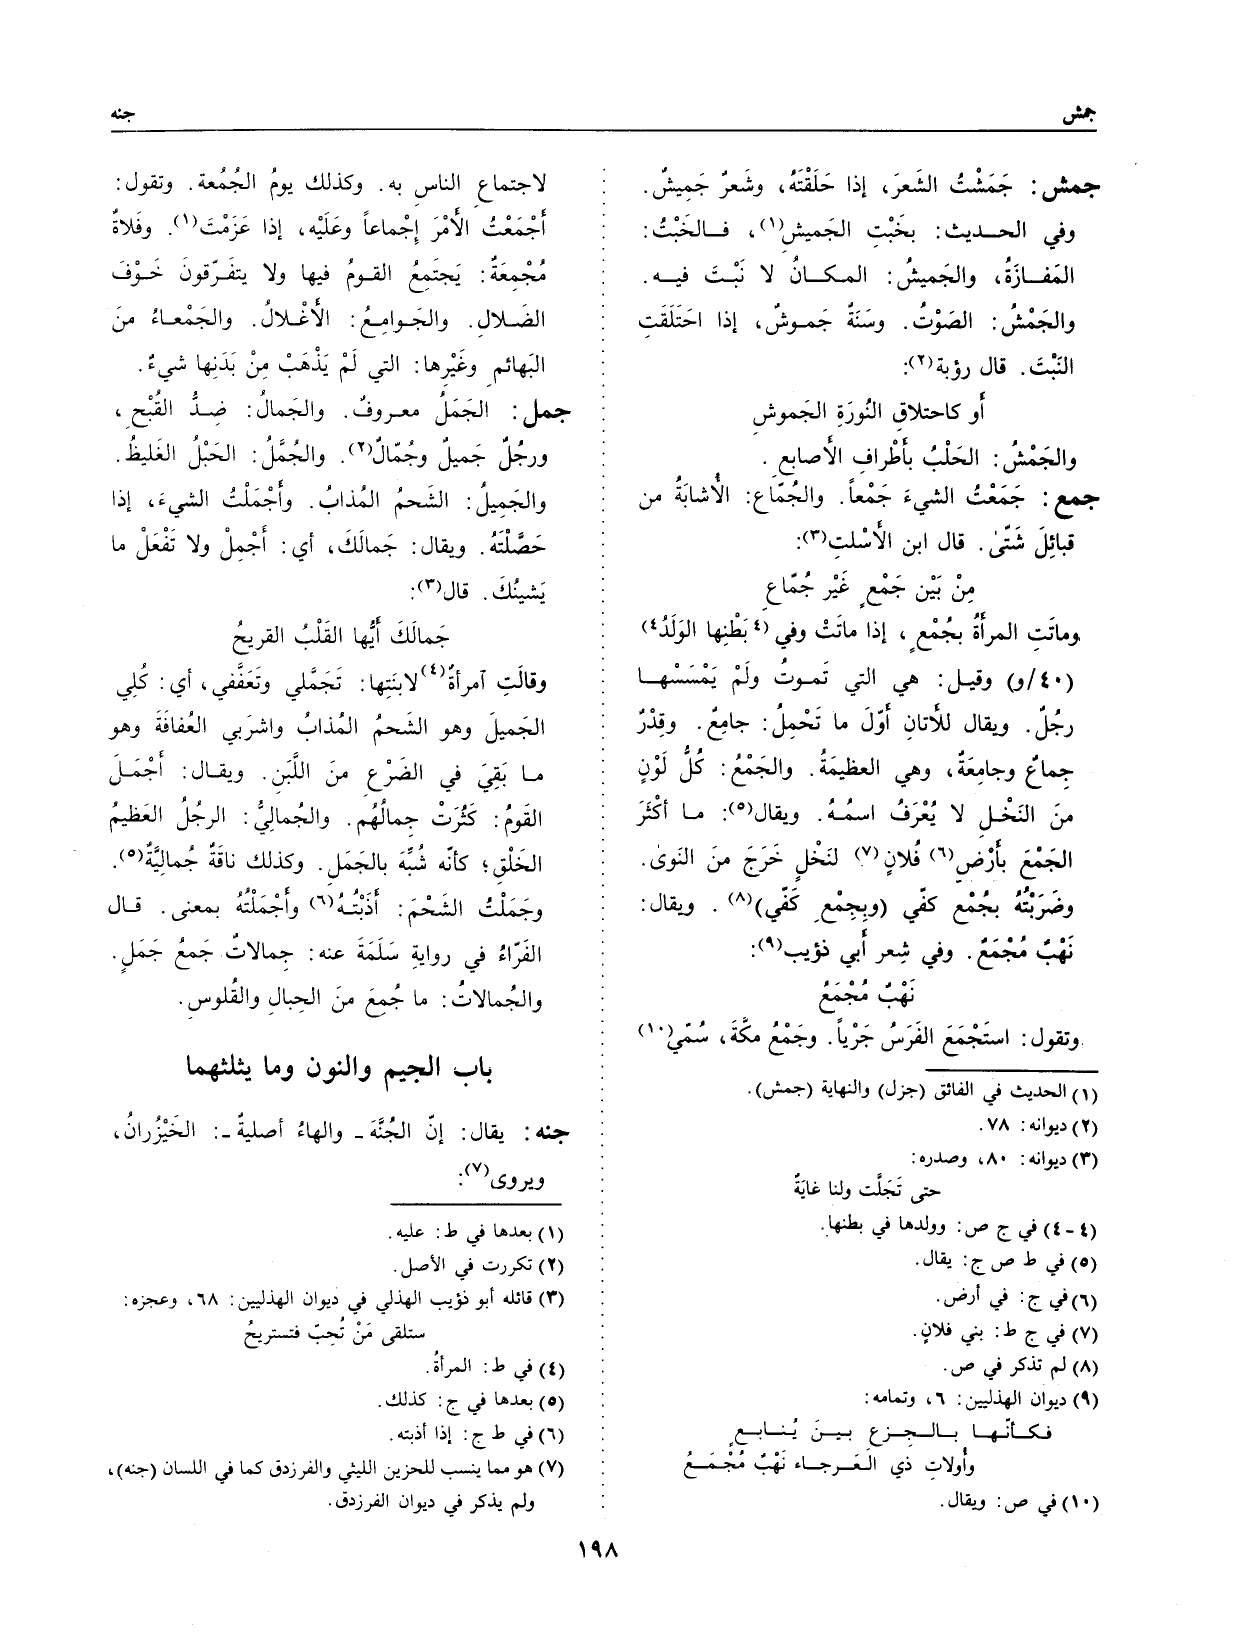 جمش
جنه
جمش: جَمَشْتُ الشَعرَ، إذا حَلَقْتَهُ، وشَعرٌ جَمِيشٌ.
وفي الحديث: بخَبْتِ الجَميشِ(١)، فالخَبْتُ:
المَفازَةُ، والجَميشُ: المكانُ لا نَبْتَ فيه.
والجَمْشُ: الصَوْتُ. وسَنَةٌ جَموشٌ، إذا احتَلَقَتِ
النَبْتَ. قال رؤبة(٢):
أو كاحتلاقِ النُورَةِ الجَموشِ
والجَمْشُ: الحَلْبُ بأطْرافِ الأصابعِ.
جمع: جَمَعْتُ الشيءَ جَمْعاً. والجُمّاع: الأُشابَةُ من
قبائِلَ شَتّىٰ. قال ابن الأسْلتِ(٣):
مِنْ بَيْن جَمْعٍ غَيْر جُمّاعِ
وماتَتِ المرأةُ بجُمْعٍ، إذا ماتَتْ وفي (٤بَطْنِها الوَلَدُ٤)
(٤٠/و) وقيل: هي التي تموتُ ولَمْ يَمْسَسْها
رجُلٌ. ويقال للأتانِ أوّلَ ما تَحْمِلُ: جامِعٌ. وقِدْرٌ
جِماعٌ وجامِعَةٌ، وهي العظيمَةُ. والجَمْعُ: كُلُّ لَوْنٍ
منَ النَخْلِ لا يُعْرَفُ اسمُهُ. ويقال(٥): ما أكْثَرَ
الجَمْعَ بأرْضِ(٦) فُلانٍ(٧) لنَخْلٍ خَرَجَ منَ النَوىٰ.
وضَرَبْتُهُ بجُمْعِ كفّي (وبِجِمْعِ كَفّي)(٨). ويقال:
نَهْبٌ مُجْمَعٌ. وفي شِعر أبي ذؤيب(٩):
نَهْبٌ مُجْمَعُ
وتقول: استَجْمَعَ الفَرَسُ جَرْياً. وجَمْعُ مكَّةَ، سُمّيَ(١٠)
(١) الحديث في الفائق (جزل) والنهاية (جمش).
(٢) ديوانه: ٧٨.
(٣) ديوانه: ٨٠، وصدره:
حتى تَجَلَّت ولنا غايَةٌ
(٤-٤) في ج ص: وولدها في بطنها.
(٥) في ط ص ج: يقال.
(٦) في ج: في أرض.
(٧) في ج ط: بني فلانٍ.
(٨) لم تذكر في ص.
(٩) ديوان الهذليين: ٦، وتمامه:
فكأنّها بالجِزعِ بينَ يُنابعٍ
وأولاتِ ذي العَرجاء نَهْبٌ مُجْمَعُ
(١٠) في ص: ويقال.
لاجتماعِ الناسِ به. وكذلك يومُ الجُمُعة. وتقول:
أجْمَعْتُ الأمْرَ إجْماعاً وعَلَيْه، إذا عَزَمْتَ(١). وفَلاةٌ
مُجْمِعَةٌ: يَجتَمِعُ القومُ فيها ولا يتفَرّقونَ خَوْفَ
الضَلالِ. والجَوامِعُ: الأغْلالُ. والجَمْعاءُ منَ
البَهائم وغَيْرها: التي لَمْ يَذْهَبْ مِنْ بَدَنِها شيءٌ.
جمل: الجَمَلُ معروفٌ. والجَمالُ: ضِدُّ القُبْحِ،
ورجُلٌ جَميلٌ وجُمّالٌ(٢). والجُمَّلُ: الحَبْلُ الغَليظُ.
والجَمِيلُ: الشَحمُ المُذابُ. وأجْمَلْتُ الشيءَ، إذا
حَصَّلْتَهُ. ويقال: جَمالَكَ، أي: أجْمِلْ ولا تَفْعَلْ ما
يَشينُكَ. قال(٣):
جَمالَكَ أيُّها القَلْبُ القَريحُ
وقالَتِ آمرأةٌ(٤) لابنَتِها: تَجَمَّلي وتَعَفَّفي، أي: كُلِي
الجَميلَ وهو الشَحمُ المُذابُ واشرَبي العُفافَةَ وهو
ما بَقِيَ في الضَرْعِ منَ اللَّبَنِ. ويقال: أجْمَلَ
القَومُ: كَثُرَتْ جِمالُهُم. والجُمالِيُّ: الرجُلُ العَظيمُ
الخَلْقِ؛ كأنّه شُبِّهَ بالجَمَلِ. وكذلك ناقَةٌ جُماليَّةٌ(٥).
وجَمَلْتُ الشَحْمَ: أذَبْتُهُ(٦) وأجْمَلْتُهُ بمعنى. قال
الفَرّاءُ في روايةِ سَلَمَةَ عنه: جِمالاتٌ جَمعُ جَمَلٍ.
والجُمالاتُ: ما جُمِعَ منَ الحِبالِ والقُلوس.
باب الجيم والنون وما يثلثهما
جنه: يقال: إنّ الجُنَّهَ - والهاءُ أصليةٌ -: الخَيْزُرانُ،
ويروى(٧):
(١) بعدها في ط: عليه.
(٢) تكررت في الأصل.
(٣) قائله أبو ذؤيب الهذلي في ديوان الهذليين: ٦٨، وعجزه:
ستلقى مَنْ تُحِبّ فتستريحُ
(٤) في ط: المرأةُ.
(٥) بعدها في ج: كذلك.
(٦) في ط ج: إذا أذبته.
(٧) هو مما ينسب للحزين الليثي والفرزدق كما في اللسان (جنه)،
ولم يذكر في ديوان الفرزدق.
١٩٨